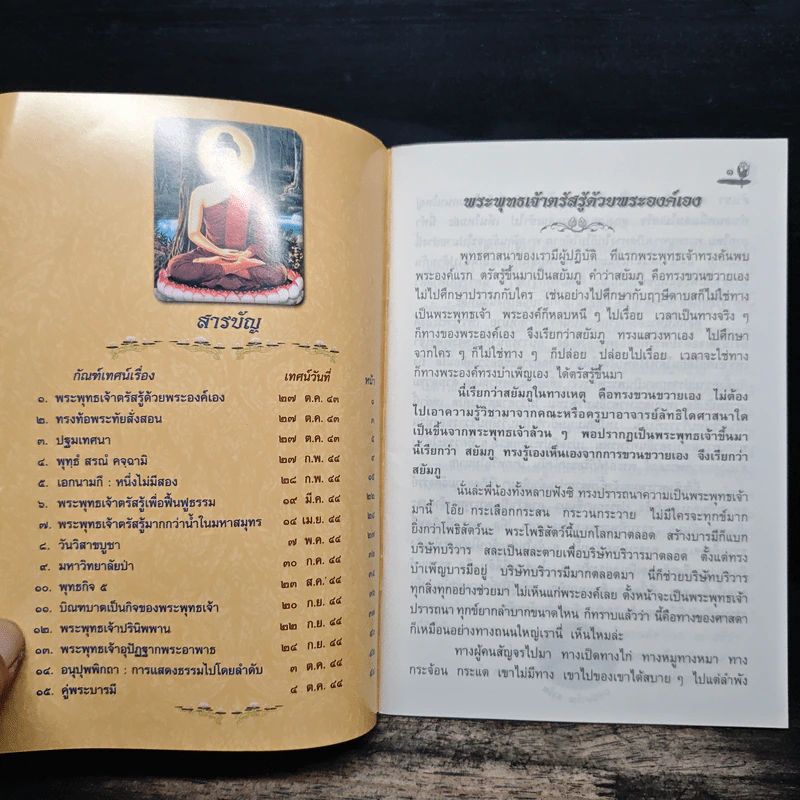 สารบัญ
กัณฑ์เทศน์เรื่อง เทศน์วันที่ หน้า
๑. พระพุทธเจ้าตรัสรู้ด้วยพระองค์เอง ๒๗ ต.ค. ๔๓ ๑
๒. ทรงท้อพระทัยสั่งสอน ๒๗ ต.ค. ๔๓
๓. ปฐมเทศนา ๒๗ ต.ค. ๔๓
๔. พุทฺธํ สรณํ คจฺฉามิ ๒๗ ก.พ. ๔๔
๕. เอกนามกึ : หนึ่งไม่มีสอง ๒๘ ก.พ. ๔๔
๖. พระพุทธเจ้าตรัสรู้เพื่อฟื้นฟูธรรม ๑๙ มี.ค. ๔๔
๗. พระพุทธเจ้าตรัสรู้มากกว่าน้ำในมหาสมุทร ๑๔ เม.ย. ๔๔
๘. วันวิสาขบูชา ๗ พ.ค. ๔๔
๙. มหาวิทยาลัยป่า ๓๐ ก.ค. ๔๔
๑๐. พุทธกิจ ๕ ๒๓ ส.ค. ๔๔
๑๑. บิณฑบาตเป็นกิจของพระพุทธเจ้า ๒๐ ก.ย. ๔๔
๑๒. พระพุทธเจ้าปรินิพพาน ๒๒ ก.ย. ๔๔
๑๓. พระพุทธเจ้าอุปัฏฐากพระอาพาธ ๒๔ ก.ย. ๔๔
๑๔. อนุปุพพิกถา : การแสดงธรรมไปโดยลำดับ ๓ ต.ค. ๔๔
๑๕. คู่พระบารมี ๔ ต.ค. ๔๔
๑
พระพุทธเจ้าตรัสรู้ด้วยพระองค์เอง
พุทธศาสนาของเรามีผู้ปฏิบัติ ที่แรกพระพุทธเจ้าทรงค้นพบ
พระองค์แรก ตรัสรู้ขึ้นมาเป็นสยัมภู คำว่าสยัมภู คือทรงขวนขวายเอง
ไม่ไปศึกษาปรารภกับใคร เช่นอย่างไปศึกษากับฤาษีดาบสก็ไม่ใช่ทาง
เป็นพระพุทธเจ้า พระองค์ก็หลบหนี ๆ ไปเรื่อย เวลาเป็นทางจริง ๆ
ก็ทางของพระองค์เอง จึงเรียกว่าสยัมภู ทรงแสวงหาเอง ไปศึกษา
จากใคร ๆ ก็ไม่ใช่ทาง ๆ ก็ปล่อย ปล่อยไปเรื่อย เวลาจะใช่ทาง
ก็ทางพระองค์ทรงบำเพ็ญเอง ได้ตรัสรู้ขึ้นมา
นี่เรียกว่าสยัมภูในทางเหตุ คือทรงขวนขวายเอง ไม่ต้อง
ไปเอาความรู้วิชามาจากคณะหรือครูบาอาจารย์ลัทธิใดศาสนาใด
เป็นขึ้นจากพระพุทธเจ้าล้วน ๆ พอปรากฏเป็นพระพุทธเจ้าขึ้นมา
นี้เรียกว่า สยัมภู ทรงรู้เองเห็นเองจากการขวนขวายเอง จึงเรียกว่า
สยัมภู
นั่นล่ะพี่น้องทั้งหลายฟังซิ ทรงปรารถนาความเป็นพระพุทธเจ้า
มานี้ โอ๊ย กระเสือกกระสน กระวนกระวาย ไม่มีใครจะทุกข์มาก
ยิ่งกว่าโพธิสัตว์นะ พระโพธิสัตว์นี้แบกโลกมาตลอด สร้างบารมีก็แบก
บริษัทบริวาร สละเป็นสละตายเพื่อบริษัทบริวารมาตลอด ตั้งแต่ทรง
บำเพ็ญบารมีอยู่ บริษัทบริวารมีมากตลอดมา นี่ก็ช่วยบริษัทบริวาร
ทุกสิ่งทุกอย่างช่วยมา ไม่เห็นแก่พระองค์เลย ตั้งหน้าจะเป็นพระพุทธเจ้า
ปรารถนา ทุกข์ยากลำบากขนาดไหน ก็ทราบแล้วว่า นี้คือทางของศาสดา
ก็เหมือนอย่างทางถนนใหญ่เรานี้ เห็นไหมล่ะ
ทางผู้คนสัญจรไปมา ทางเป็ดทางไก่ ทางหมูทางหมา ทาง
กระจ้อน กระแต เขาไม่มีทาง เขาไปของเขาได้สบาย ๆ ไปแต่ลำพัง